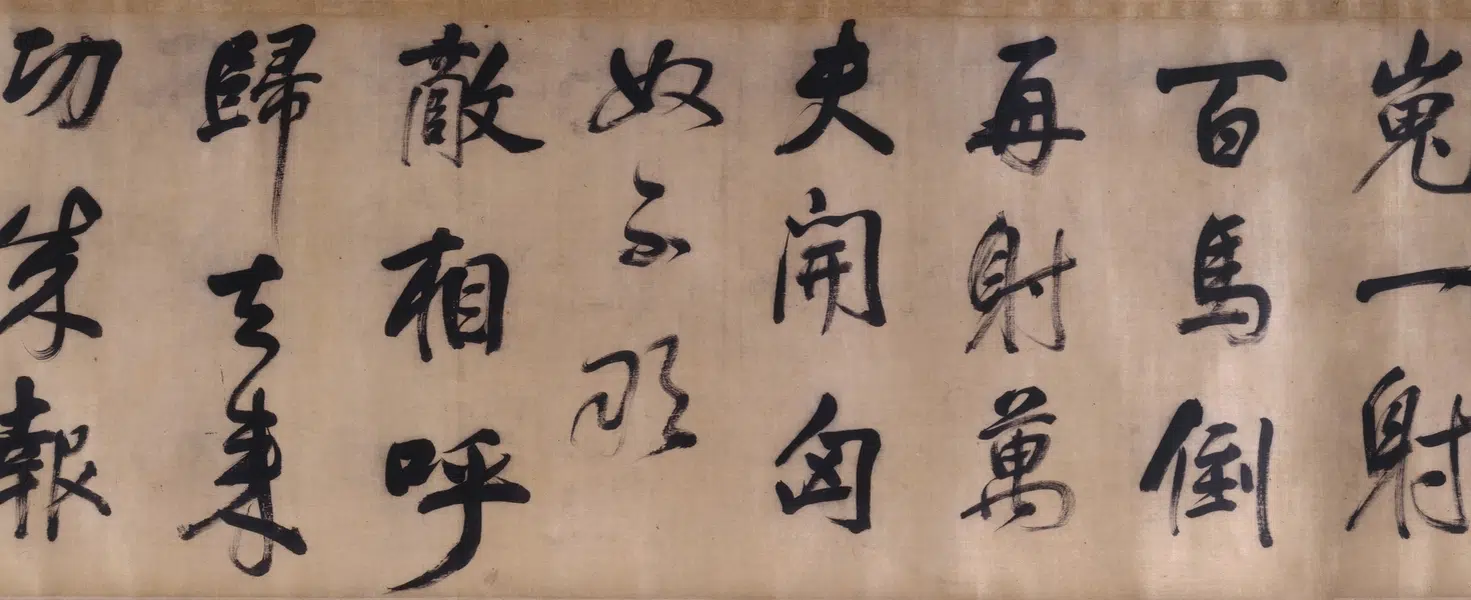 嵬一射
百馬倒
再射萬
夫開匈
奴不敢
敵相呼
歸去來
功成報